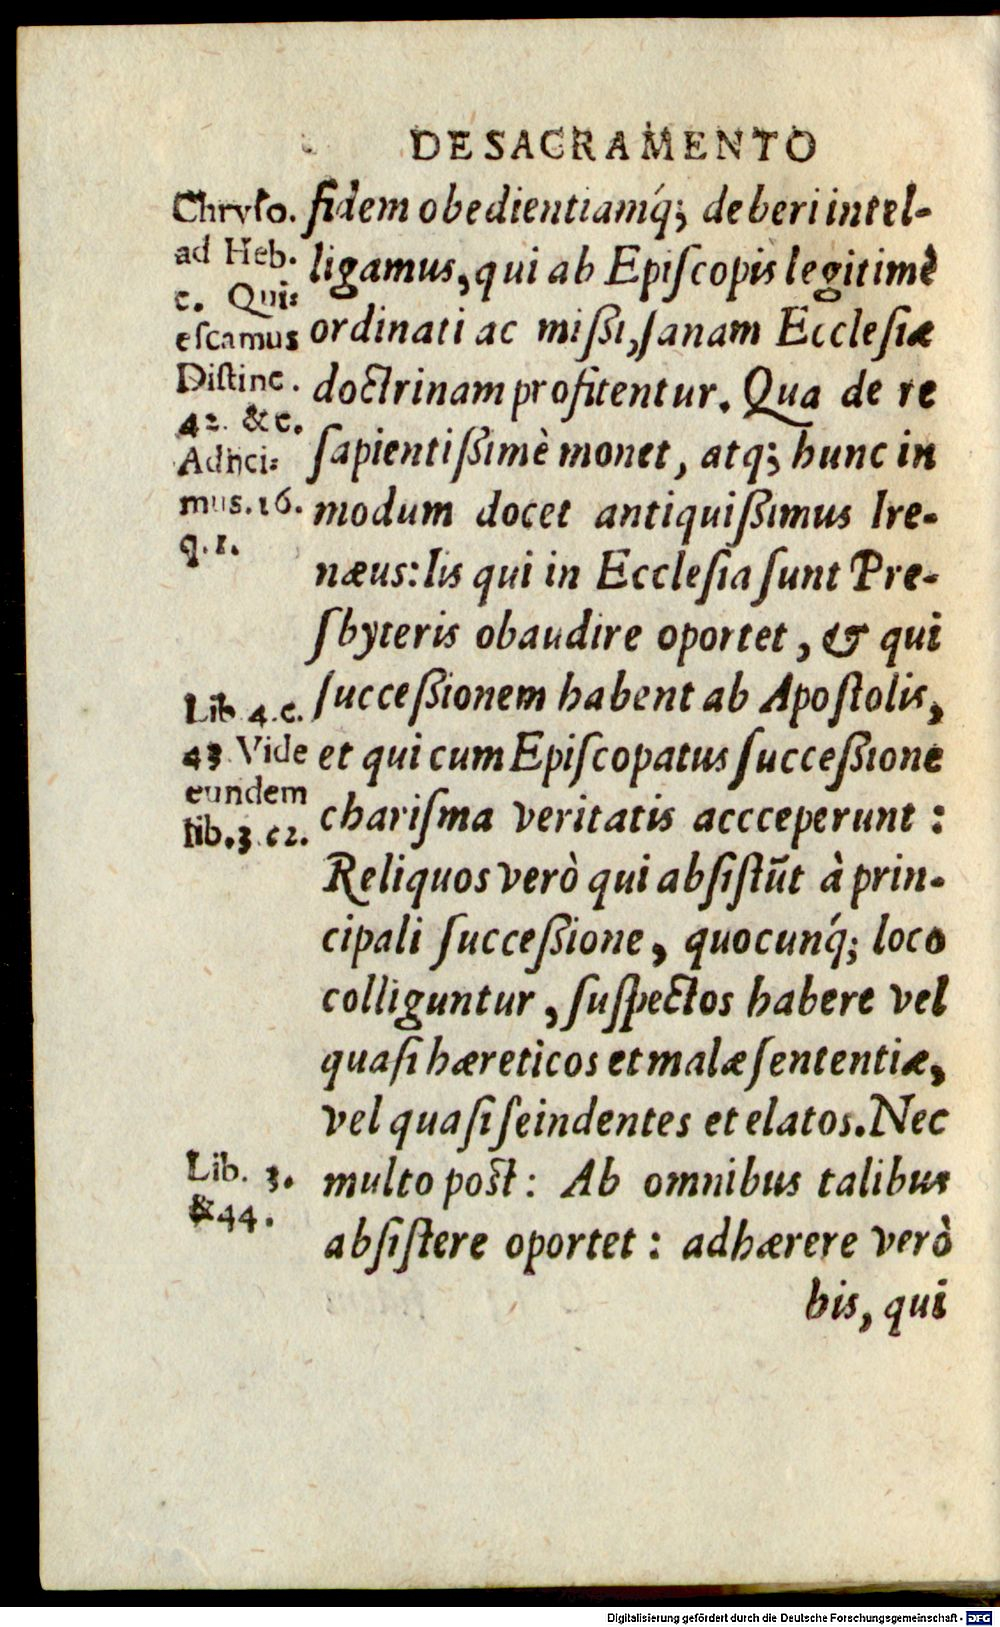 DE SACRAMENTO
Chryſo.
ad Heb.
c. Qui-
eſcamus
Diſtinc.
42. &c.
Adiici-
mus. 16.
q. 1.
fidem obedientiamq́; deberi intel-
ligamus, qui ab Epiſcopis legitimè
ordinati ac miſſi, ſanam Eccleſiæ
doctrinam profitentur. Qua de re
ſapientiſſimè monet, atq; hunc in
modum docet antiquiſſimus Ire-
næus: Iis qui in Eccleſia ſunt Pre-
ſbyteris obaudire oportet, & qui
ſucceſſionem habent ab Apoſtolis,
et qui cum Epiſcopatus ſucceſſione
chariſma veritatis accceperunt :
Reliquos verò qui abſiſtūt à prin-
cipali ſucceſſione, quocunq́; loco
colliguntur, ſuſpectos habere vel
quaſi hæreticos et malæ ſententiæ,
vel quaſi ſeindentes et elatos. Nec
multo pòſt: Ab omnibus talibus
abſiſtere oportet: adhærere verò
Lib 4. c.
43 Vide
eundem
lib. 3 c 2.
Lib. 3.
& 44.
his, qui
Digitalisierung gefördert durch die Deutsche Forschungsgemeinschaft - DFG